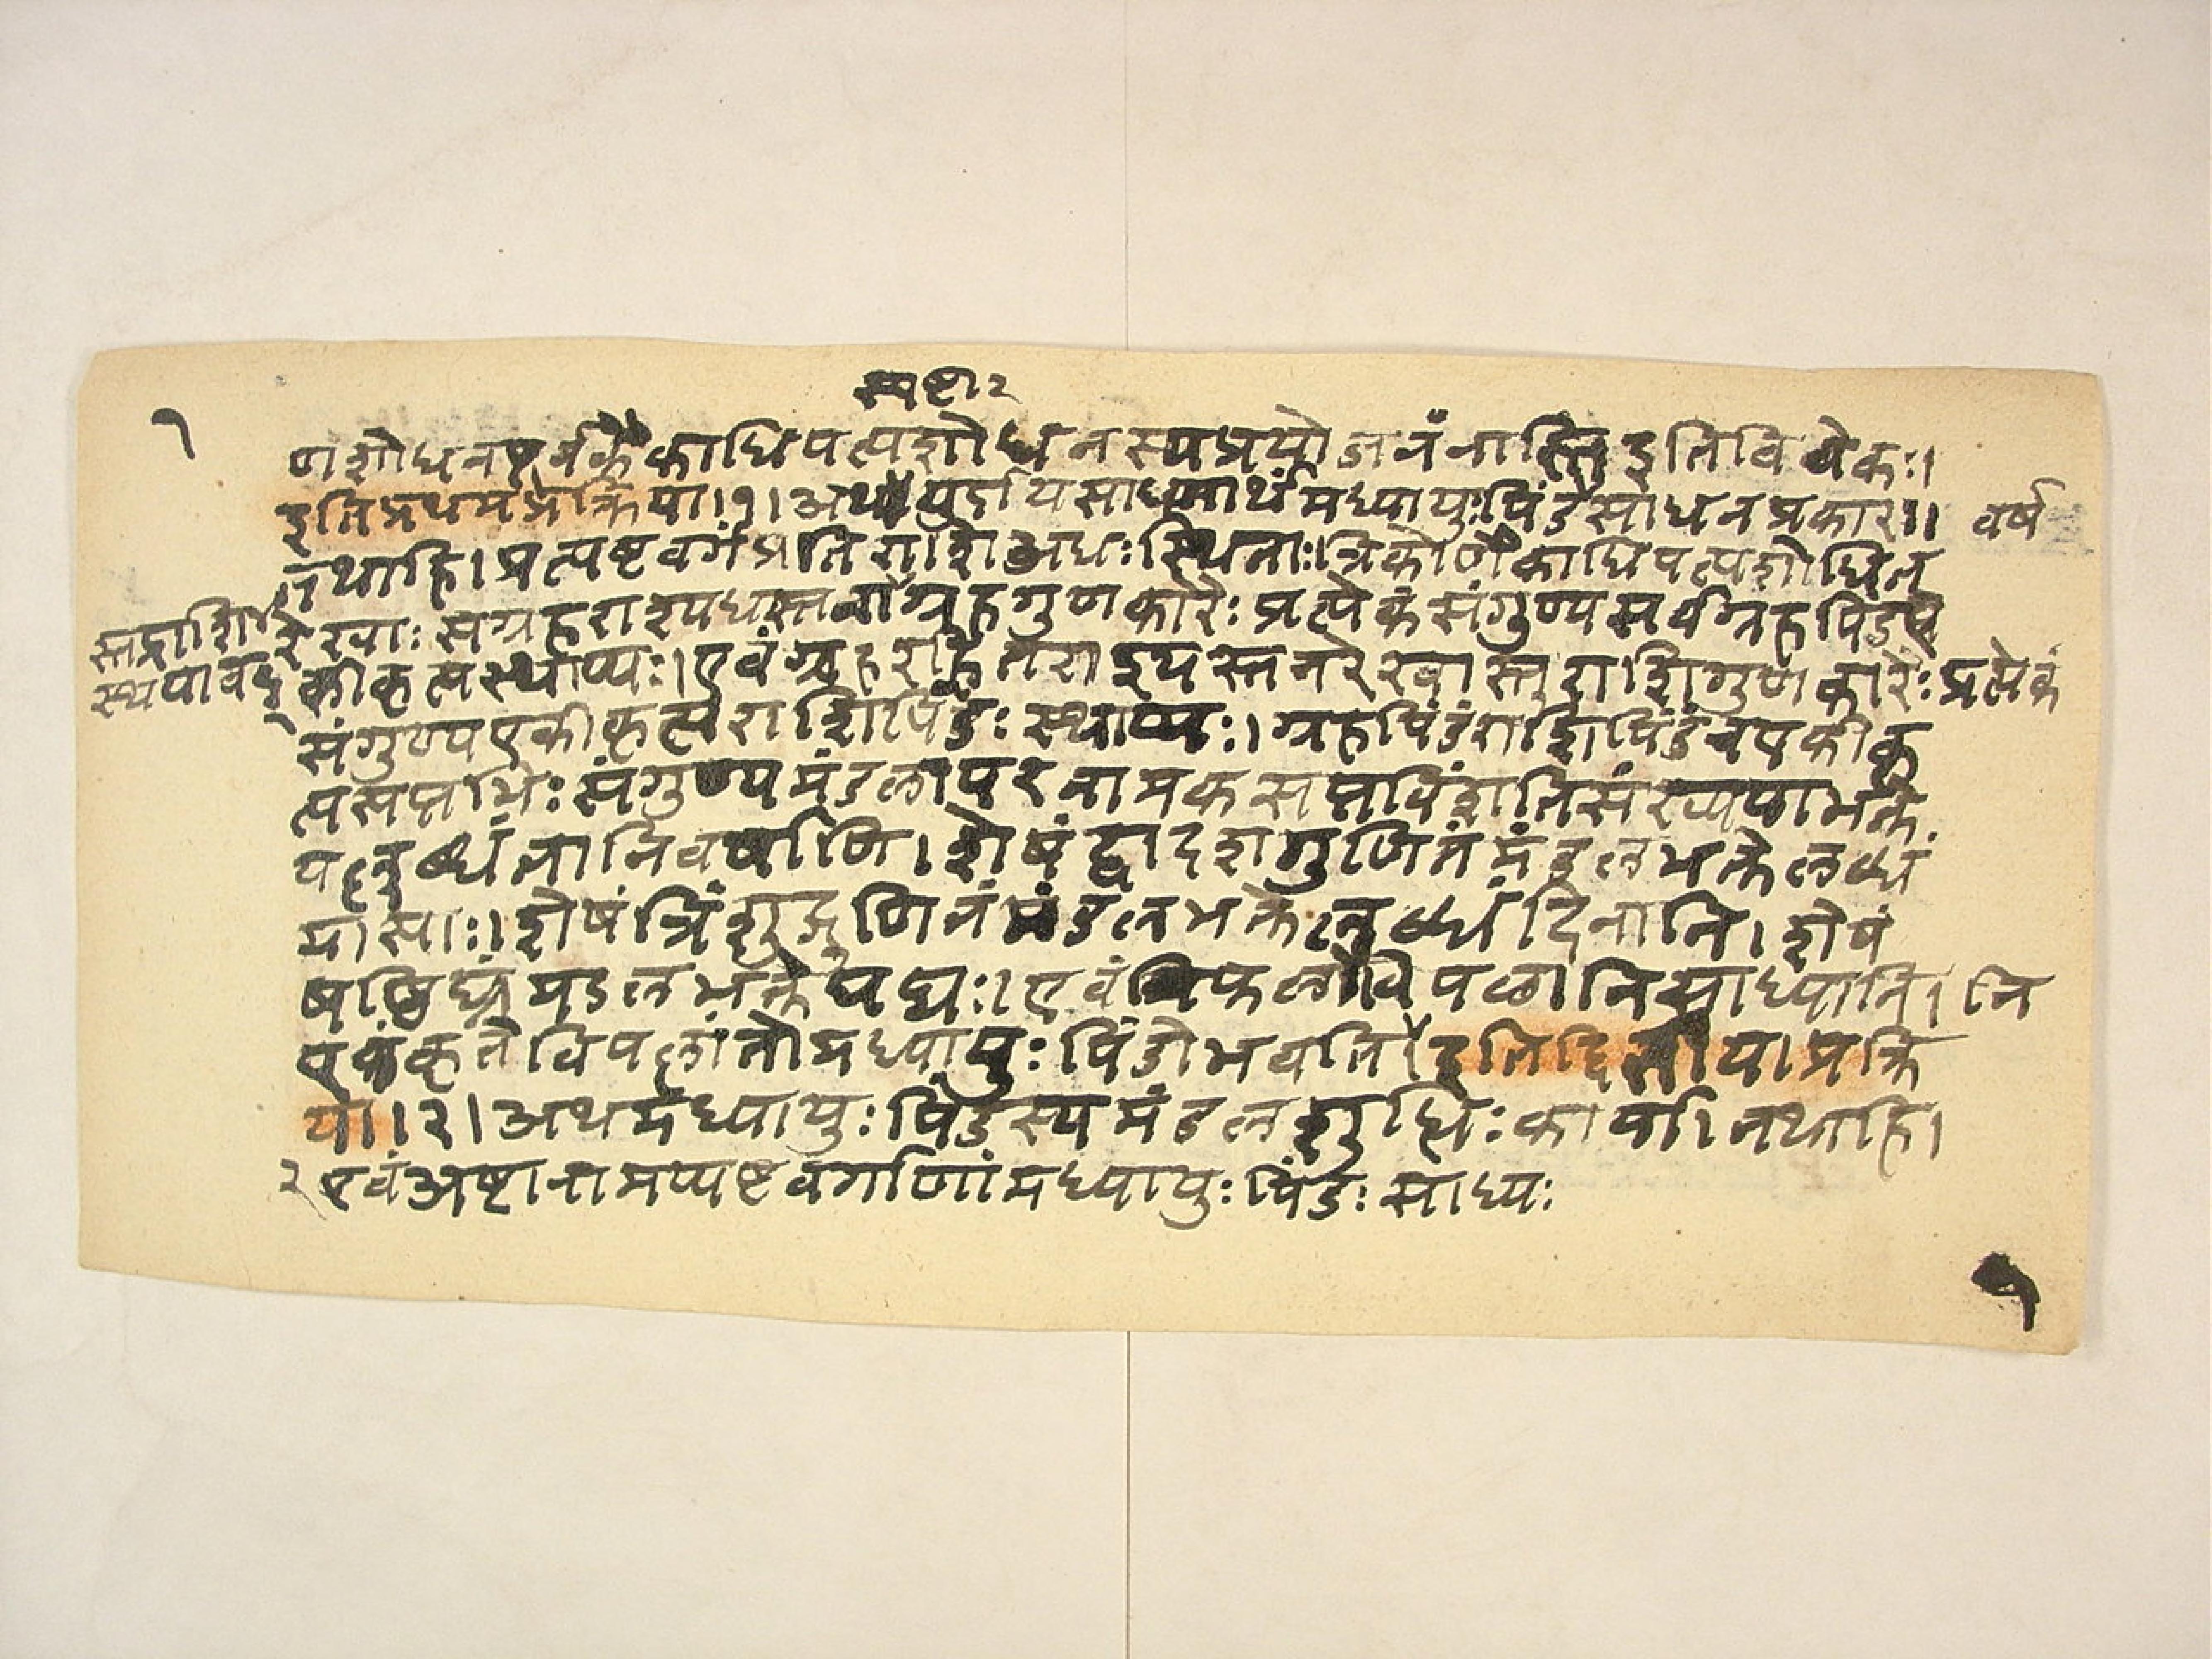 स्पष्टा २
१
णशोधनपूर्वकैकाधिपत्यशोधनस्यप्रयोजनंनास्तिइतिविवेकः।
इतिप्रथमप्रक्रिया।१।अथ युर्दायसाधनार्थंमध्यायुःपिंडसाधनप्रकारः॥ वर्ष
तथाहि।प्रत्यष्टवर्गंप्रतिराशिअधःस्थिताःत्रिकोणैकाधिपत्यशोधित
रेखाःसग्रहराश्यधस्तना ग्रहगुणकारैःप्रत्येकंसंगुण्यसर्वग्रहपिंडए
स्थपावद्
कीकृत्यस्थाप्यः।एवंग्रहरहितराश्यस्तनरेखास्तुराशिगुणकारैःप्रत्येकं
संगुण्यएकीकृत्यराशिपिंडःस्थाप्यः।ग्रहपिंडंराशिपिंडंचएकीकृ
त्यसप्तभिःसंगुण्यमंडलापरनामकसप्तविंशतिसंख्ययाभक्ते
यल्लब्धंतानिवर्षाणि।शेषंद्वादशगुणितंमंडलभक्तेलब्धं
मासाः।शेषंत्रिंशद्गुणितंमंडलभक्तेलब्धंदिनानि।शेषं
षष्ठिघ्नंमडलभक्तेघट्यः।एवं विपळानिसाध्यानि। नि
एवंकृतेविपलांतोमध्यायुःपिंडोभवति।इतिद्वितीयाप्रक्रि
या।।२।अथमध्यायुःपिंडस्यमंडलशुद्धिःकार्या।तथाहि।
२ एवंअष्टानामप्यष्टवर्गाणांमध्यायुःपिंडःसाध्यः
१